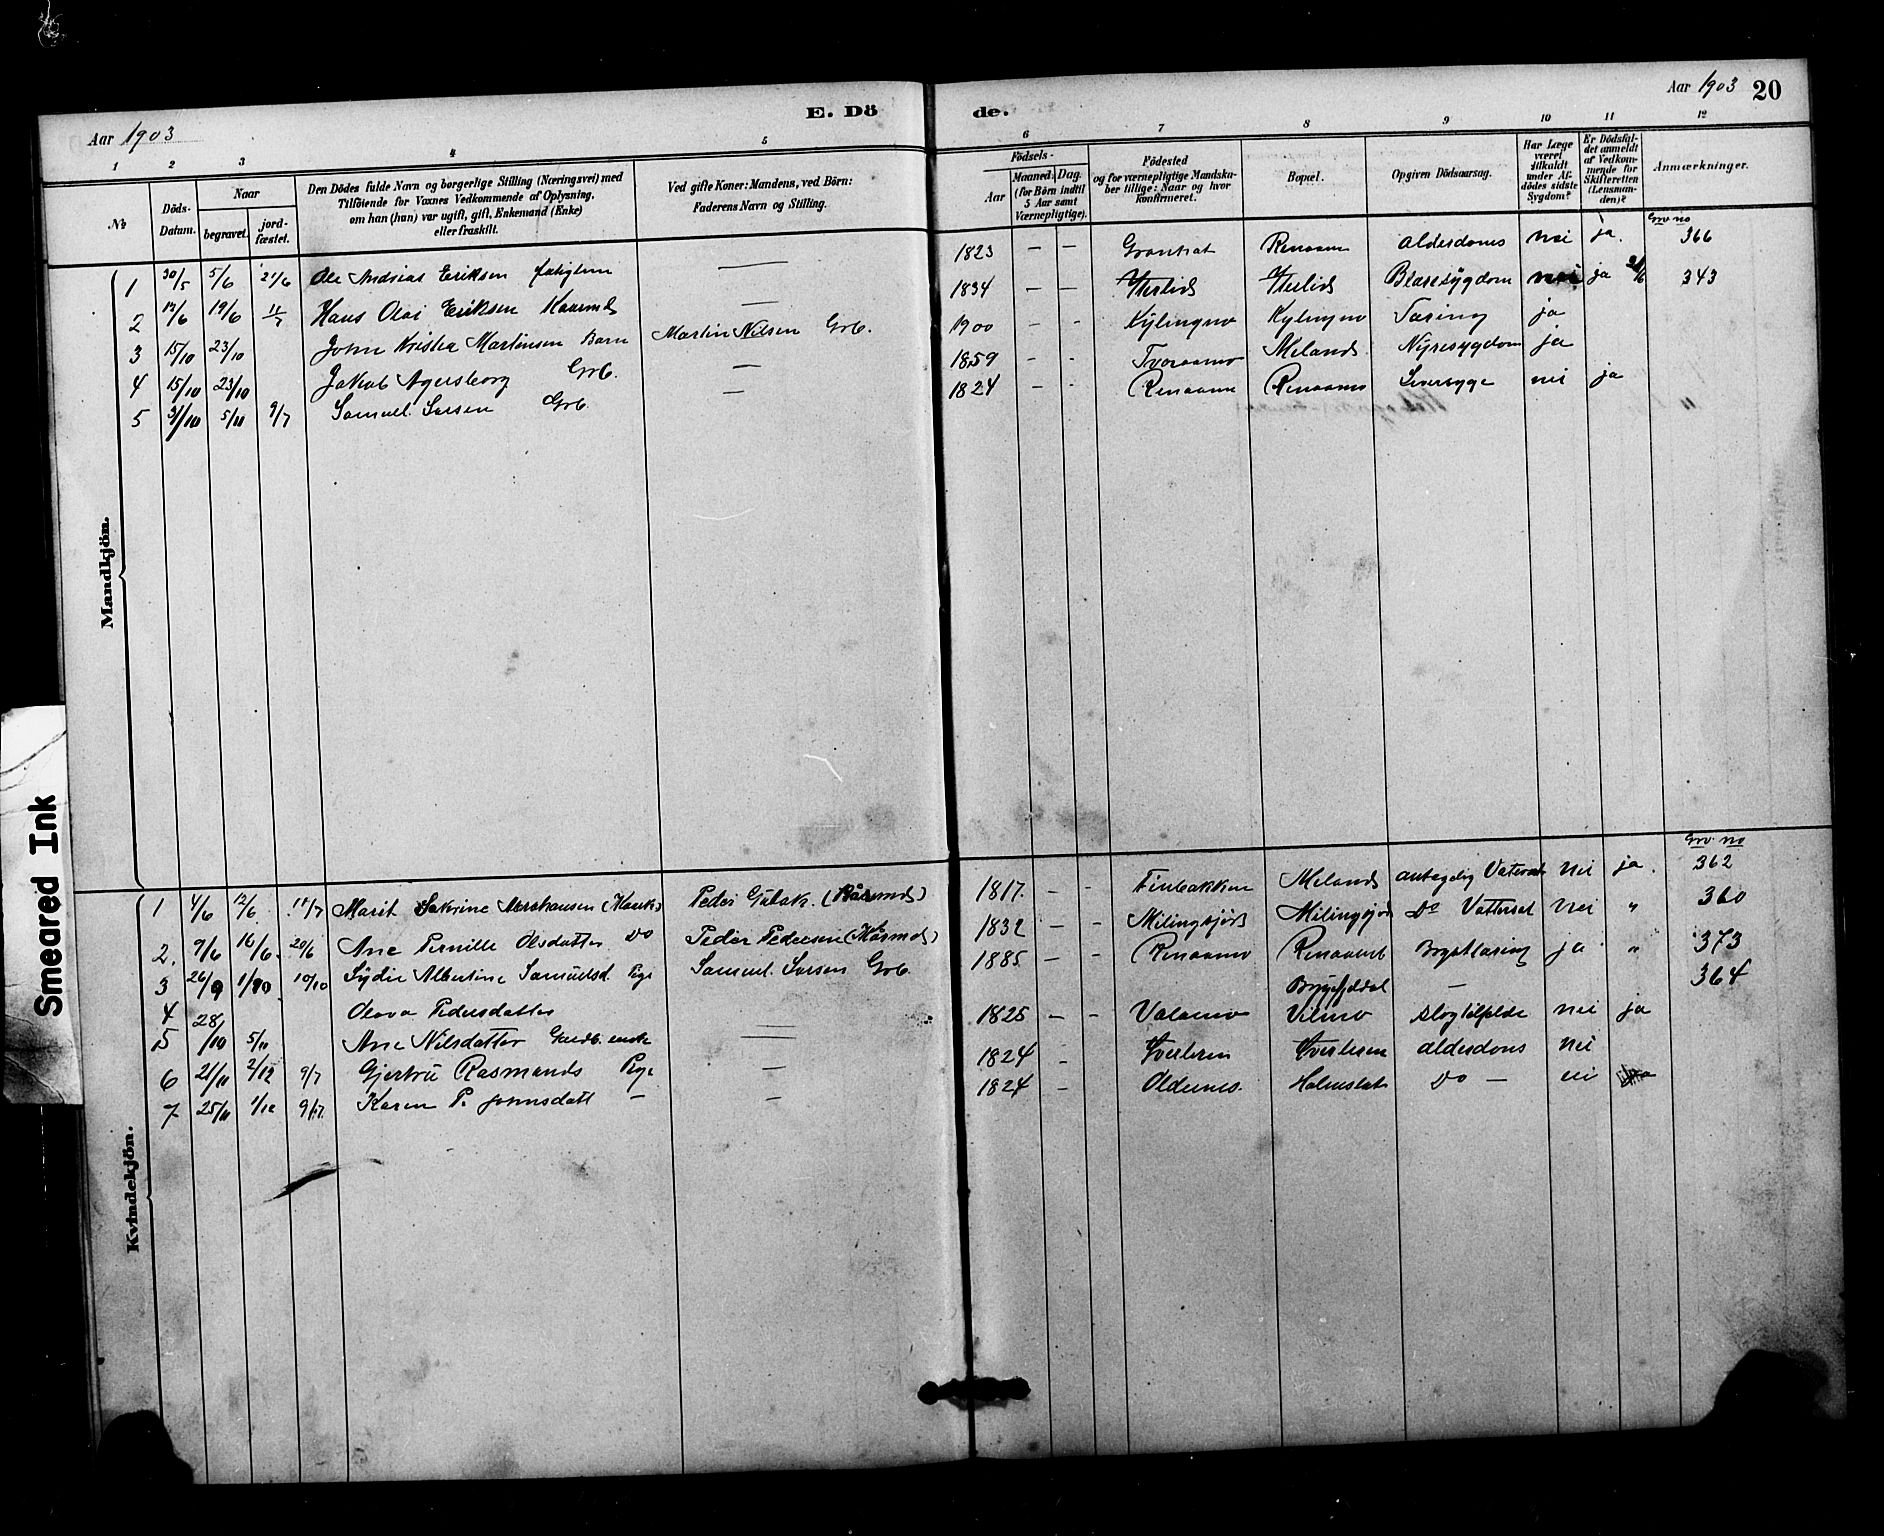 E. Dö de.
Aar 1903
Aar 1903 20
1 2 3 4 5 6 7 8 9 10 11 12
№
Döds-Datum.
Naar
begravet.
jordfæstet.
Den Dödes fulde Navn og borgerlige Stilling (Næringsvei) med
Tilföiende for Voxnes Vedkommende af Oplysning,
om han (hun) var ugift, gift, Enkemand (Enke)
eller fraskilt.
Ved gifte Koner: Mandens, ved Börn:
Faderens Navn og Stilling.
Födsels-
Aar
Maaned. Dag.
(for Börn indtil
5 Aar samt
Værnepligtige).
Födested
og for værnepligtige Mandskaber
tillige: Naar og hvor
konfirmeret.
Bopæl.
Opgiven Dödsaarsag.
Har Læge
været
tilkaldt
under Afdödes
sidste
Sygdom?
Er Dödsfaldet
anmeldt
af Vedkommende
for
Skifteretten
(Lensmanden)?
Anmærkninger.
Mandkjön.
1 30/5 5/6 21/6 Ole Andreas Eriksen — 1823 — — Alderdoms nei ja. 366
2 12/6 19/6 11/7 Hans Olai Eriksen Kaarmd — 1834 — — Ytterlid Ytterlid Blæresygdom nei ja 343
3 15/10 23/10 John Kristia Martinsen Barn Martin Nilsen Grb. 1900 - - Kylingmo Kylingmo Tæring ja
4 15/10 23/10 Jakob Agersborg Grb. — 1859 - - Tvoraamo Meland Nyresygdom ja
5 31/10 5/11 9/7 Samuel Larsen Grb. — 1824 - - Renaamo Renaamo Leversyge nei ja
Kvindekjön.
Grv. no
1 4/6 12/6 11/7 Marit Sakrine Abrahamsen (Kaark) Peder Gulak. (Kårmd) 1817. — - Finbakken Meland antagelig Vatersot nei ja. 362
2. 9/6 16/6. 20/6 Ane Pernille Olsdatter Do Peder Pedersen (Kårmd) 1832 — - Milingsjord Milingsjord Do Vattersot nei " 360
3 26/9 1/10 10/10 Lydie Albertine Samuelsd. Pige Samuel Larsen Grb. 1885 — - Renaamo Renaamo Brysttæring ja " 373
4 Olava Pedersdatter Bryggfjeldal — 364
5 28/10 5/11 Ane Nilsdatter Gaardb. enke — 1825 — - Vilmo Slagtilfælde nei ja
6 21/11 2/12 9/7 Gjertru Rasmunds Pige — 1824 - Alderdoms nei
7 25/11 1/12 9/7. Karen P. Johnsdatt — — 1824 - Oldernes. Holmslet Do — nei
Smeared Ink